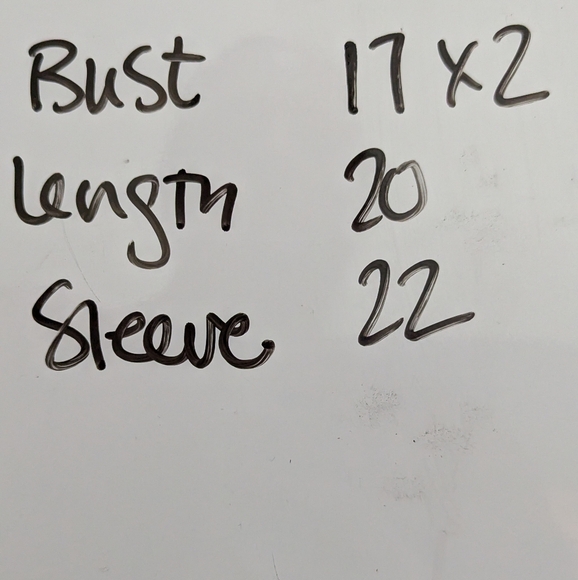 Bust 17 x 2
Length 20
Sleeve 22